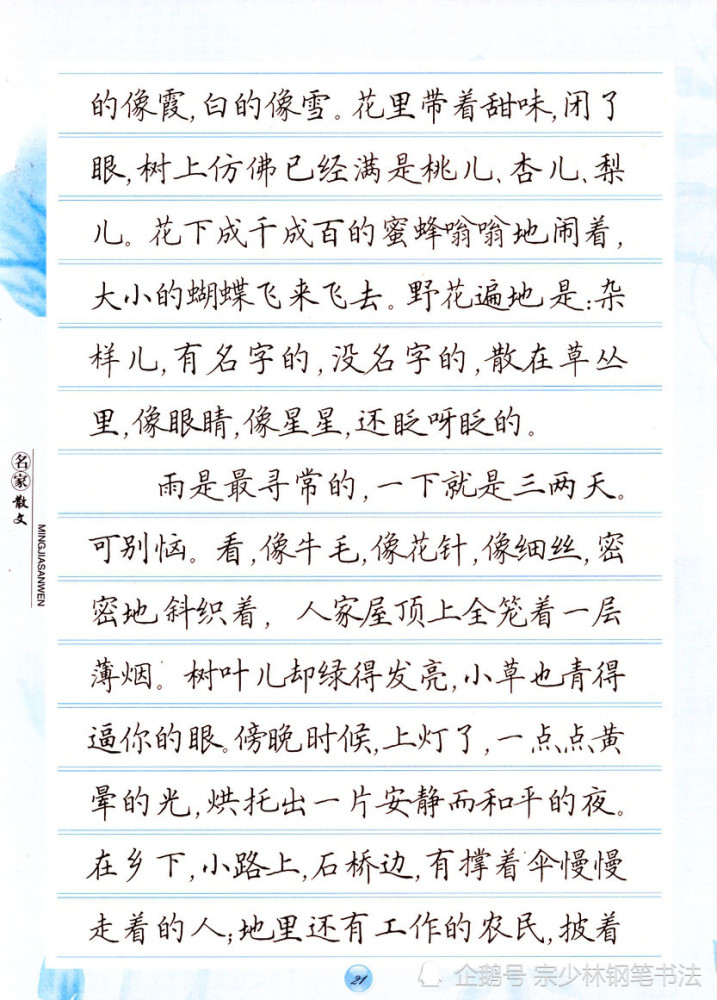 的像霞,白的像雪。花里带着甜味,闭了
眼,树上仿佛已经满是桃儿、杏儿、梨
儿。花下成千成百的蜜蜂嗡嗡地闹着,
大小的蝴蝶飞来飞去。野花遍地是:杂
样儿,有名字的,没名字的,散在草丛
里,像眼睛,像星星,还眨呀眨的。
雨是最寻常的,一下就是三两天。
可别恼。看,像牛毛,像花针,像细丝,密
密地斜织着,人家屋顶上全笼着一层
薄烟。树叶儿却绿得发亮,小草也青得
逼你的眼。傍晚时候,上灯了,一点点黄
晕的光,烘托出一片安静而和平的夜。
在乡下,小路上,石桥边,有撑着伞慢慢
走着的人;地里还有工作的农民,披着
名家散文
MINGJIASANWEN
21
企鹅号 宗少林钢笔书法